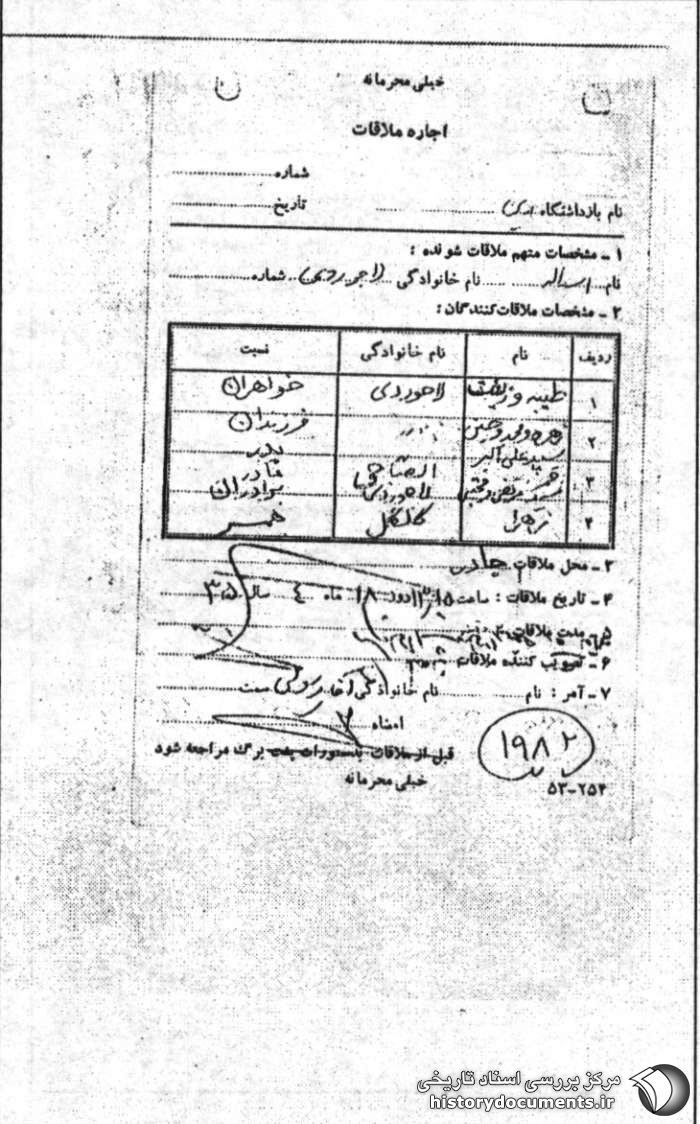 خیلی محرمانه
اجازه ملاقات
شماره
نام بازداشتگاه اوین تاریخ
۱ ـ مشخصات متهم ملاقات شونده :
نام اسداله نام خانوادگی لاجوردی شماره
۲ ـ مشخصات ملاقات‌کنندگان:
ردیف نام نام خانوادگی نسبت
۱ طیبه و زینت لاجوردی خواهران
۲ زهره و محمد و حسین فرزندان
سید علی اکبر پدر
۳ مادر
مرتضی لاجوردی برادران
۴ زهرا همسر
۳ ـ محل ملاقات
۴ ـ تاریخ ملاقات : ساعت روز ۱۸ ماه ٤ سال ۳۵
۵ ـ مدت ملاقات
۶ ـ تصویب کننده ملاقات
۷ ـ آمر : نام نام خانوادگی سمت
امضاء
قبل از ملاقات بدستورات پشت برگ مراجعه شود
خیلی محرمانه
۱۹۸۲
۵۳-۲۵۴
مرکز بررسی اسناد تاریخی
historydocuments.ir